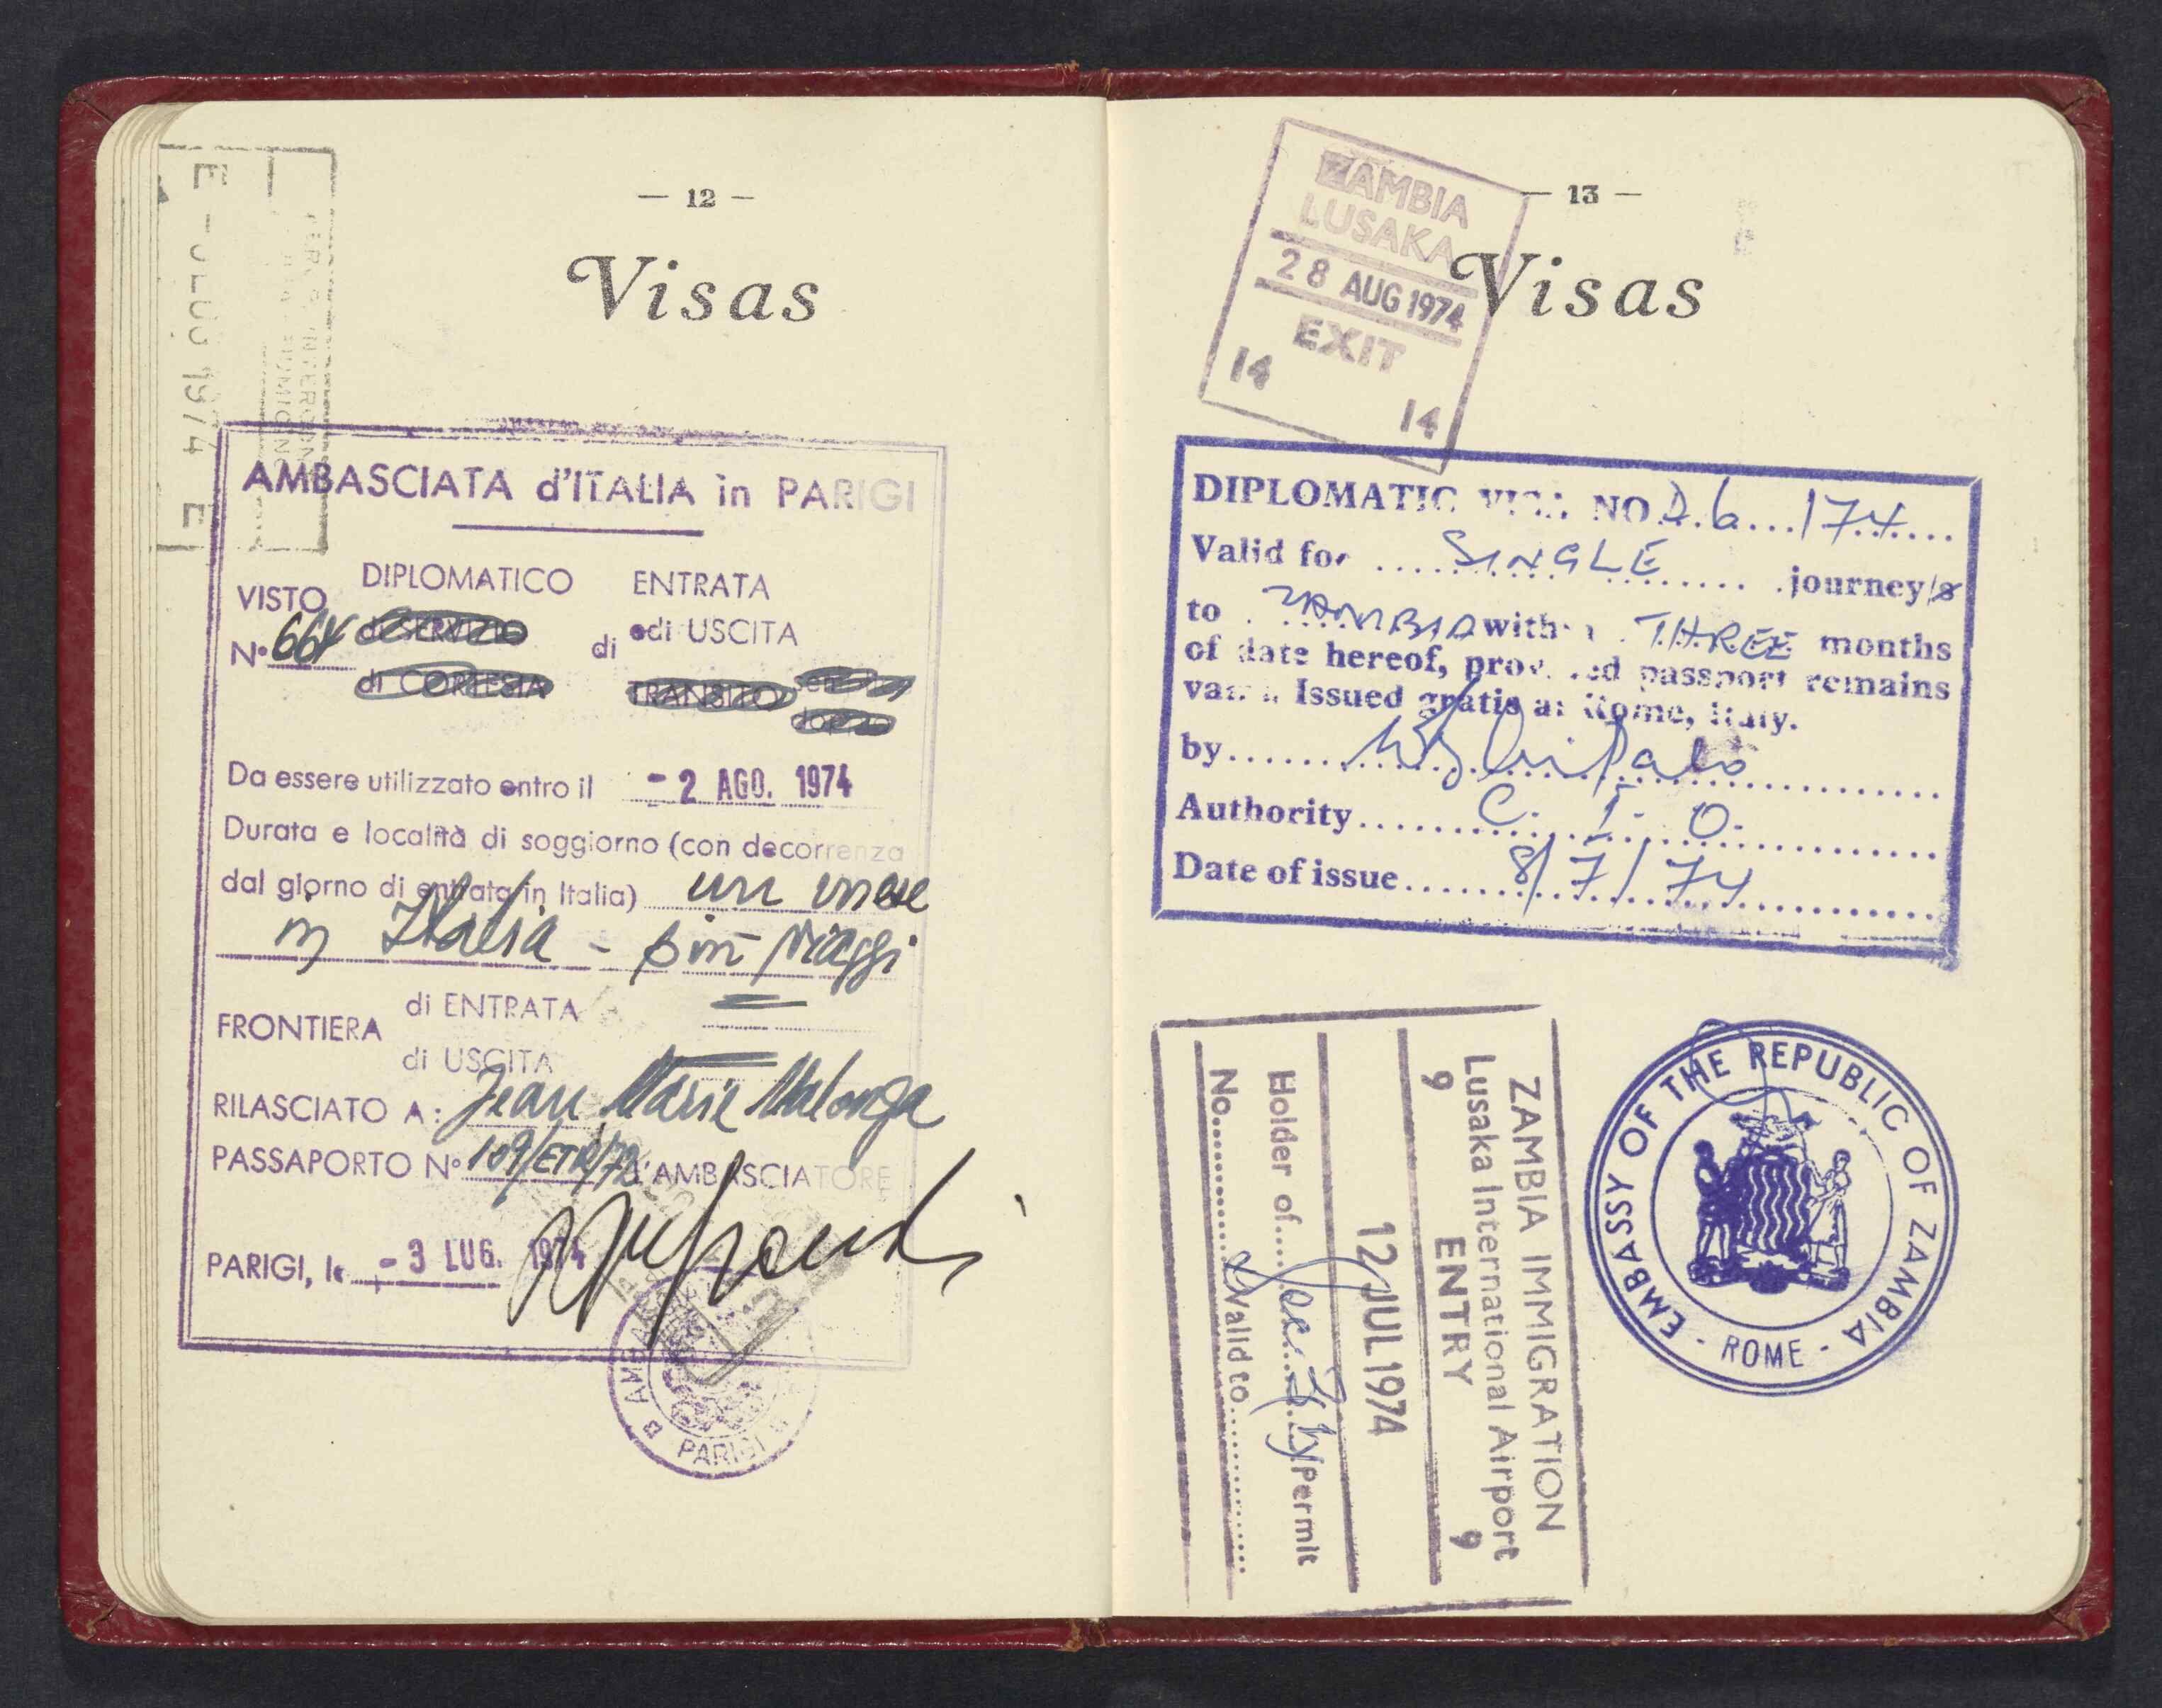 — 12 —
Visas
1974 E
AMBASCIATA d'ITALIA in PARIGI
VISTO
DIPLOMATICO
di SERVIZIO
di CORTESIA
N°
di
ENTRATA
edi USCITA
TRANSITO
Da essere utilizzato entro il - 2 AGO. 1974
Durata e località di soggiorno (con decorrenza
dal giorno di entrata in Italia) un mese
in Italia - più viaggi
FRONTIERA
di ENTRATA
di USCITA
RILASCIATO A: Jean Marie Malonga
PASSAPORTO N° 109/ETR/72
L'AMBASCIATORE
PARIGI, le - 3 LUG. 1974
PARIGI
— 13 —
Visas
ZAMBIA
LUSAKA
28 AUG 1974
EXIT
14
14
DIPLOMATIC VISA NO D.6...174
Valid for SINGLE journey/s
to ZAMBIA within THREE months
of date hereof, provided passport remains
valid. Issued gratis at Rome, Italy.
by
Authority C. I. O.
Date of issue 8/7/74
ZAMBIA IMMIGRATION
Lusaka International Airport
9 ENTRY 9
12 JUL 1974
Holder of Permit
No. Valid to
EMBASSY OF THE REPUBLIC OF ZAMBIA
- ROME -